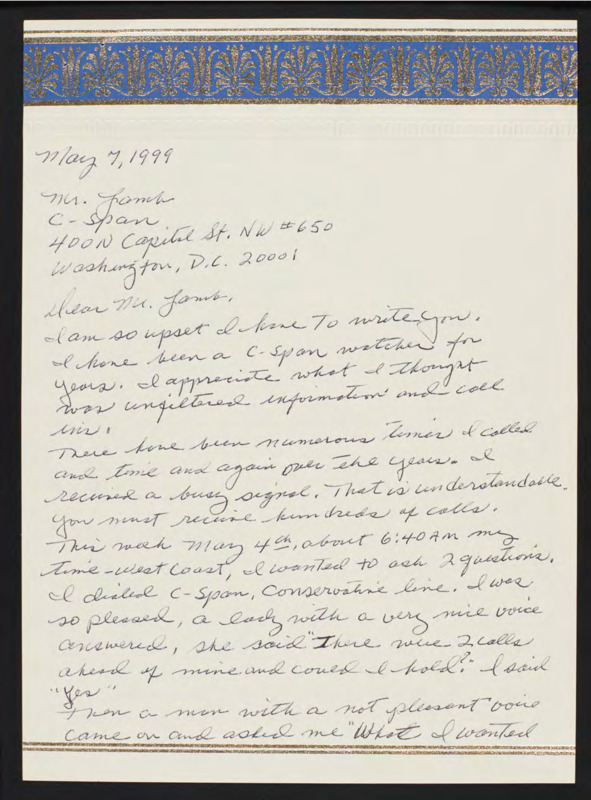 May 7, 1999
Mr. Lamb
C-Span
400 N Capitol St. NW #650
Washington, D.C. 20001
Dear Mr. Lamb,
I am so upset I have To write you.
I have been a C-Span watcher for
years. I appreciate what I thought
was unfiltered information and call
ins.
There have been numerous times I called
and time and again over the years. I
recieved a busy signal. That is understandable.
You must recieve hundreds of calls.
This week May 4th, about 6:40 AM my
time-West Coast, I wanted to ask 2 questions.
I dialed C-Span, Conservative line. I was
so pleased, a lady with a very nice voice
answered, she said "There were 2 calls
ahead of mine and could I hold?" I said
"Yes"
Then a man with a not pleasant voice
came on and asked me "What I wanted